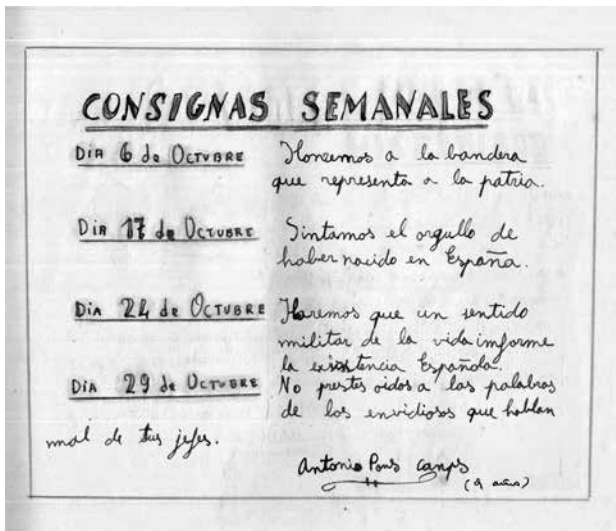 CONSIGNAS SEMANALES
DIA 6 de OCTUBRE Honremos a la bandera
que representa a la patria.
DIA 17 de OCTUBRE Sintamos el orgullo de
haber nacido en España.
DIA 24 de OCTUBRE Haremos que un sentido
militar de la vida informe
la existencia Española.
DIA 29 de OCTUBRE No prestes oidos a las palabras
de los envidiosos que hablan
mal de tus jefes.
Antonio Pons Camps
(9 años)